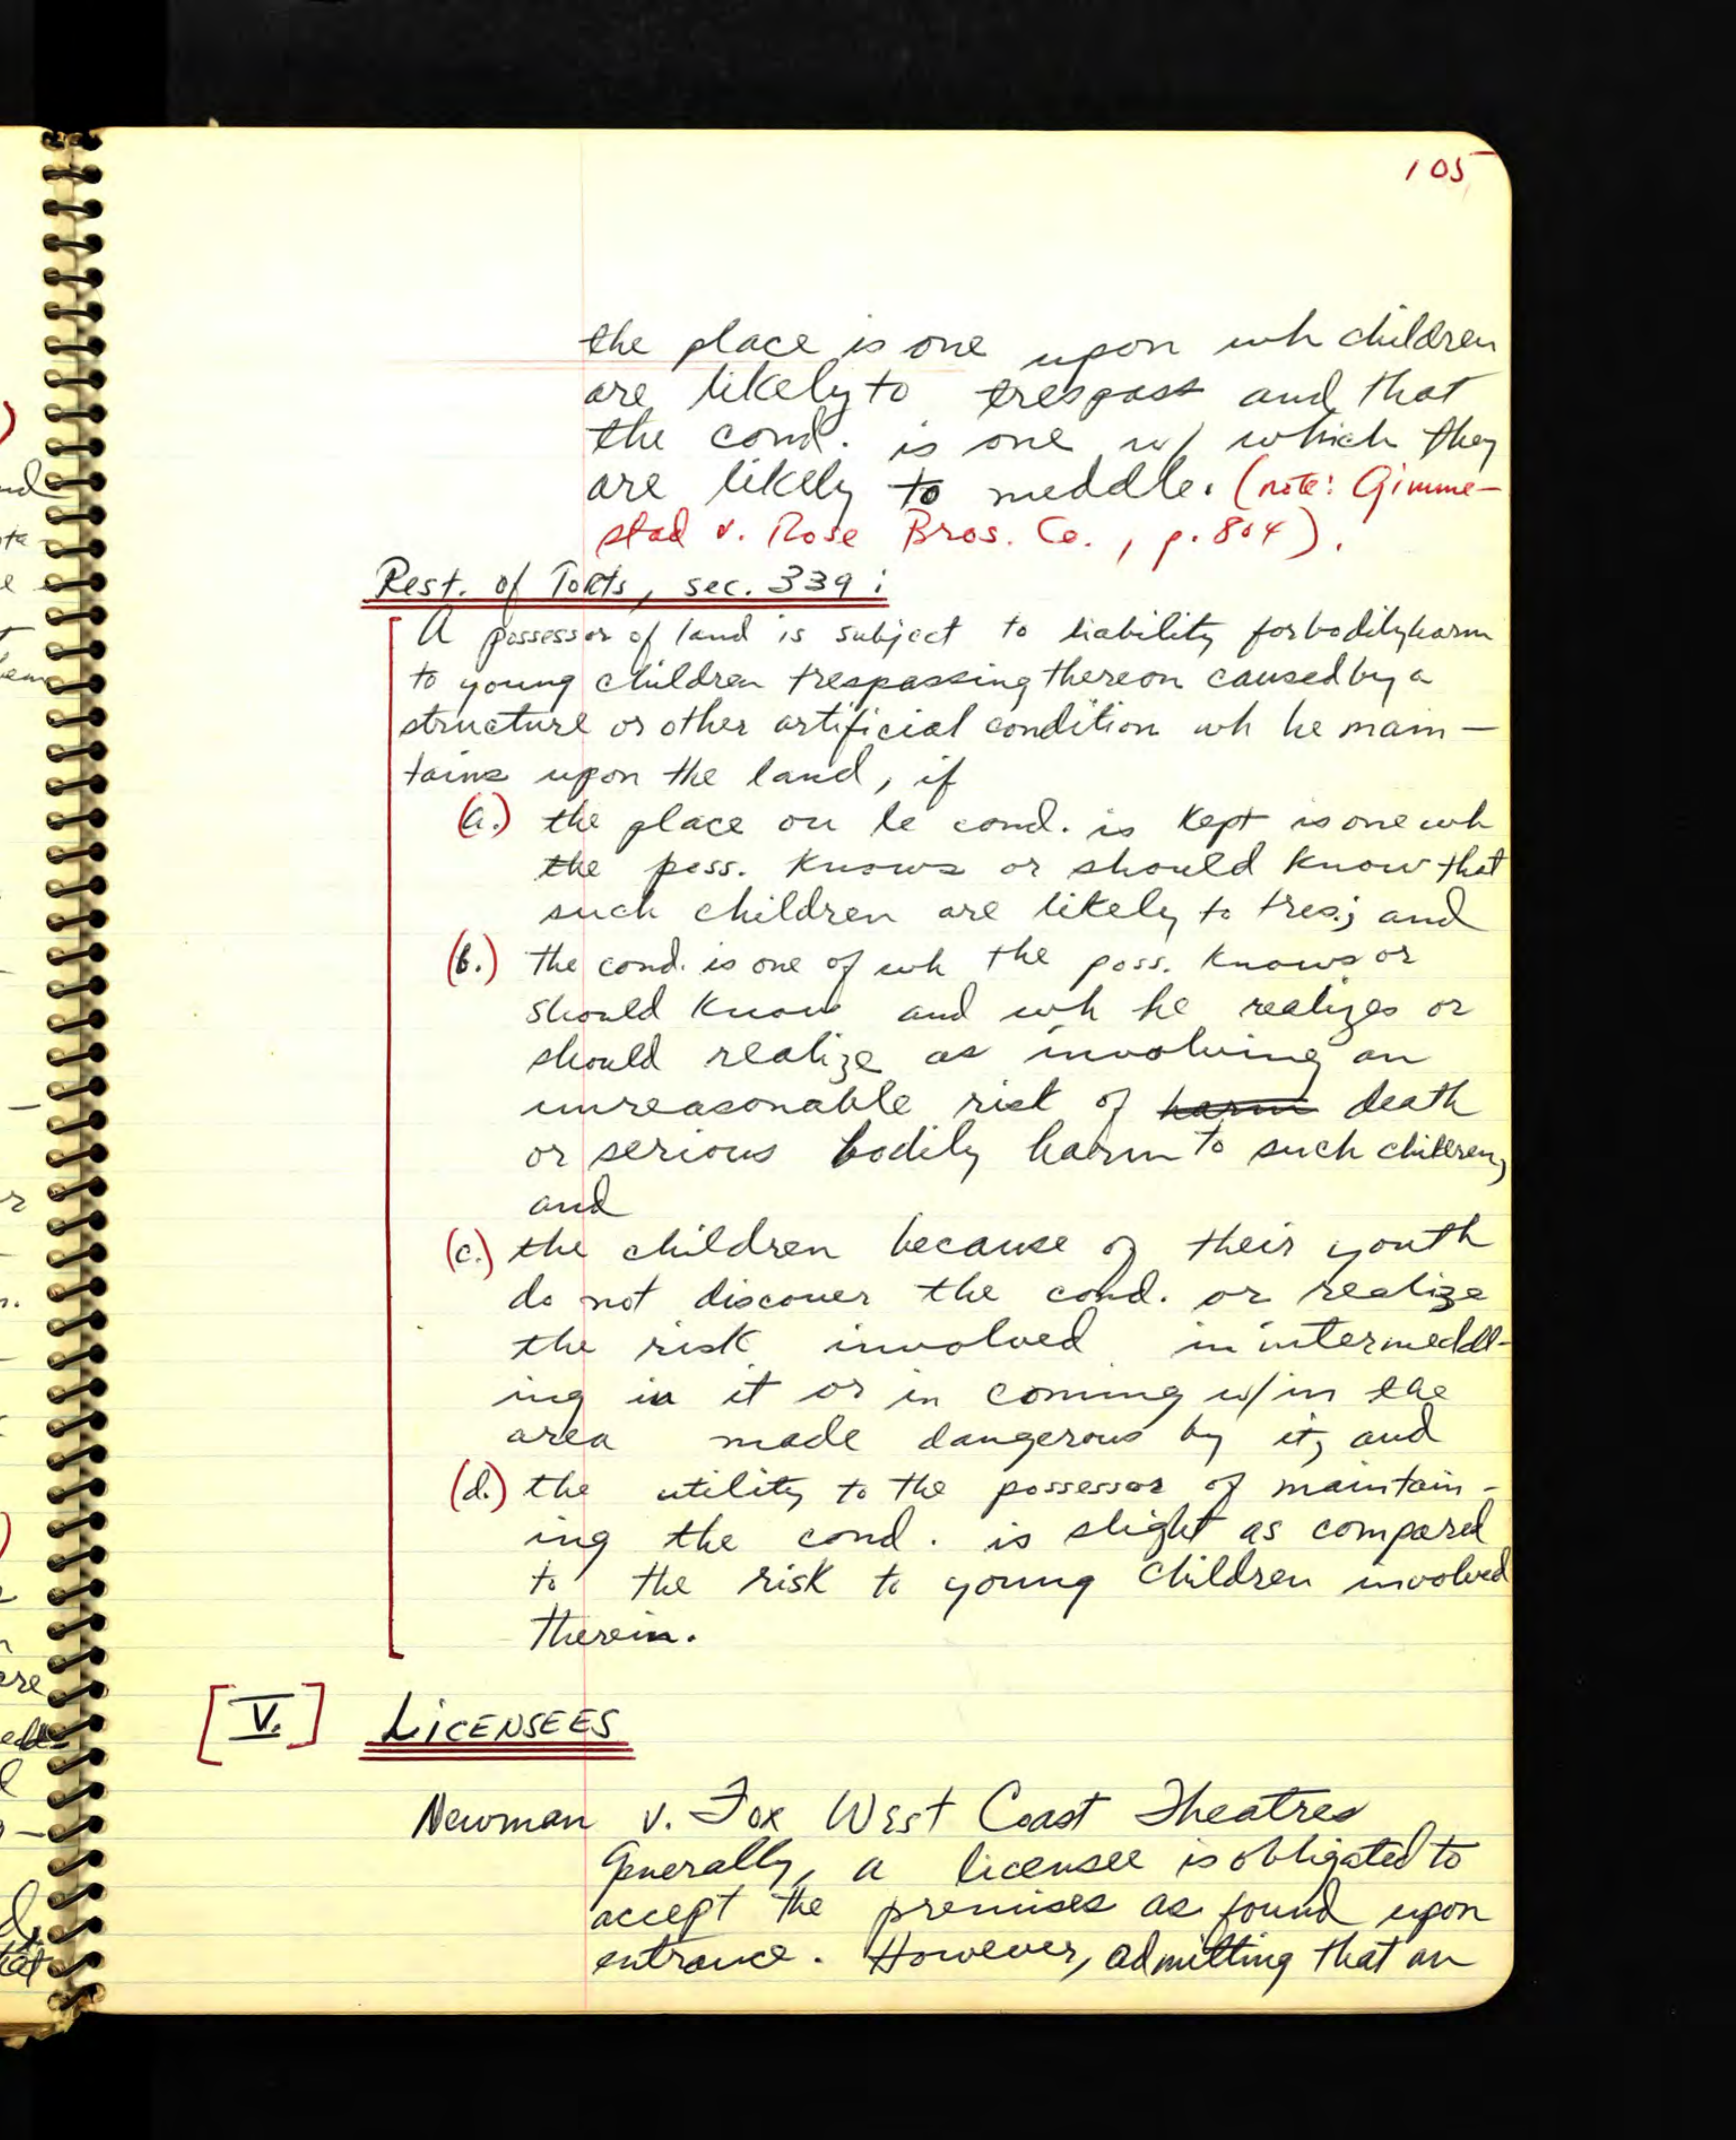 105
the place is one upon wh children
are likely to trespass and that
the cond. is one w/ which they
are likely to meddle. (note: Gimme-
stad v. Rose Bros. Co., p. 804).
Rest. of Torts, sec. 339:
A possessor of land is subject to liability for bodily harm
to young children trespassing thereon caused by a
structure or other artificial condition wh he main-
tains upon the land, if
(a.) the place on le cond. is kept is one wh
the poss. knows or should know that
such children are likely to tres.; and
(b.) the cond. is one of wh the poss. knows or
should know and wh he realizes or
should realize as involving an
unreasonable risk of harm death
or serious bodily harm to such children,
and
(c.) the children because of their youth
do not discover the cond. or realize
the risk involved in intermeddl-
ing in it or in coming w/in the
area made dangerous by it, and
(d.) the utility to the possessor of maintain-
ing the cond. is slight as compared
to the risk to young children involved
therein.
[V.] LICENSEES
Newman v. Fox West Coast Theatres
Generally, a licensee is obligated to
accept the premises as found upon
entrance. However, admitting that an